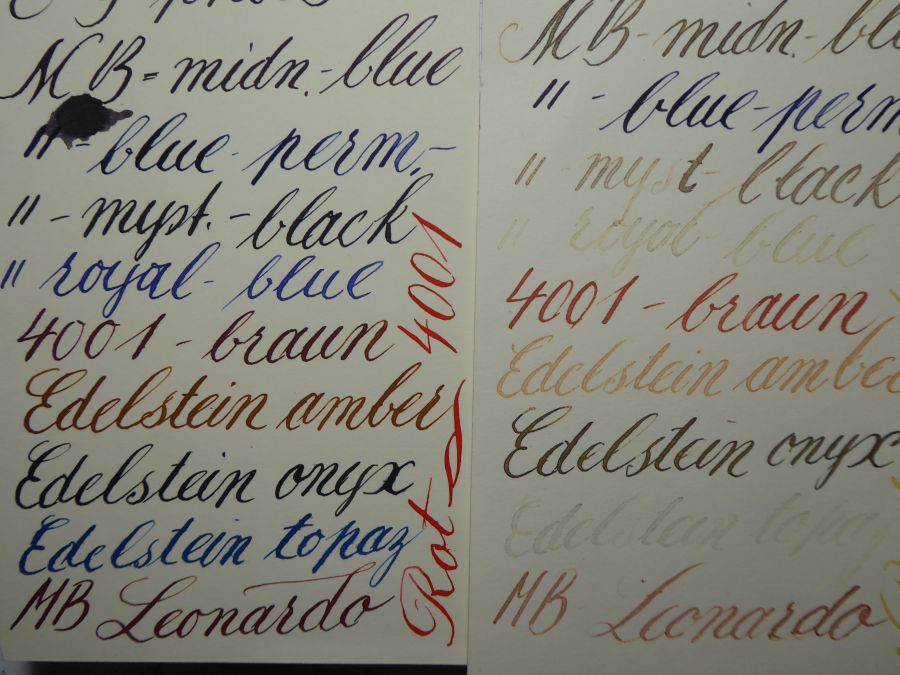 MB - midn. - blue
" - blue - perm. -
" - myst. - black
" royal - blue
4001 - braun
Edelstein amber
Edelstein onyx
Edelstein topaz
MB Leonardo
Rot - 4001
MB - midn. -
" - blue - perm
" - myst - black
" royal - blue
4001 - braun
Edelstein ambe
Edelstein onyx
Edelstein topa
MB Leonardo